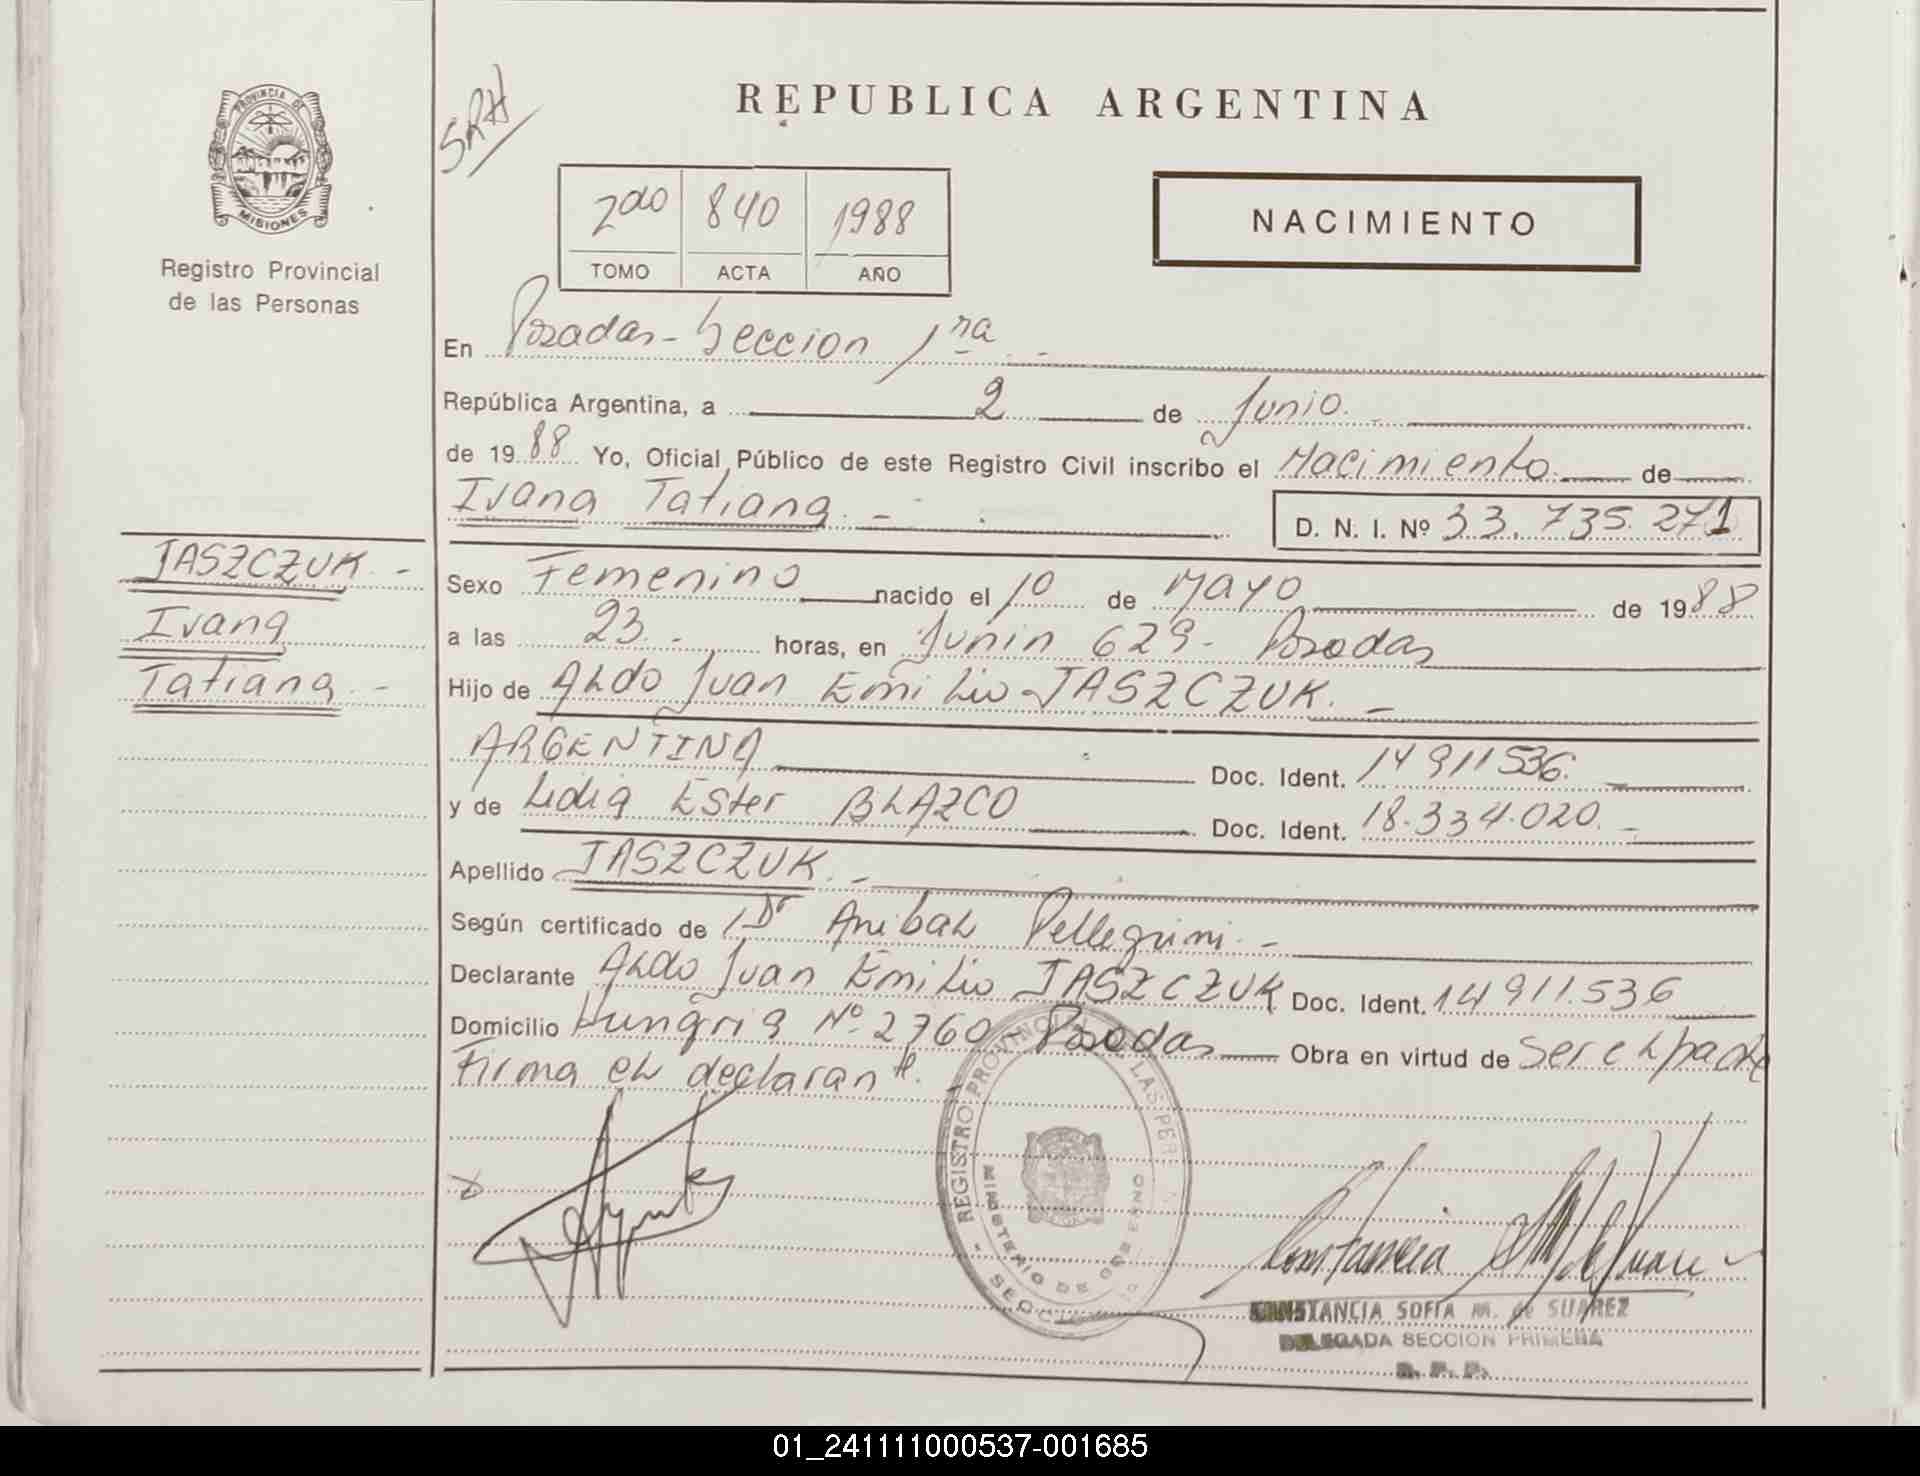 PROVINCIA DE
MISIONES
Registro Provincial
de las Personas
JASZCZUK. -
Ivana
Tatiana. -
SRH
REPUBLICA ARGENTINA
2do 840 1988
TOMO ACTA AÑO
NACIMIENTO
En Posadas - Seccion 1ra. -
República Argentina, a 2 de Junio.
de 19 88 Yo, Oficial Público de este Registro Civil inscribo el Nacimiento. de
Ivana Tatiana. - D. N. I. Nº 33.735.271
Sexo Femenino nacido el 10 de MAYO de 19 88
a las 23. - horas, en Junin 629 - Posadas
Hijo de Aldo Juan Emilio JASZCZUK. -
ARGENTINA Doc. Ident. 14911536. -
y de Lidia Ester BLAZCO Doc. Ident. 18.334.020. -
Apellido JASZCZUK. -
Según certificado de Dr Anibal Pellegrini. -
Declarante Aldo Juan Emilio JASZCZUK Doc. Ident. 14911.536
Domicilio Hungria Nº 2760 - Posadas Obra en virtud de Ser el padre
Firma el declarante. -
REGISTRO PROVINCIAL LAS PER
MINISTERIO DE GOBIERNO
SECCION
Constancia
CONSTANCIA SOFIA M. de SUAREZ
DELEGADA SECCION PRIMERA
R. P. P.
01_241111000537-001685